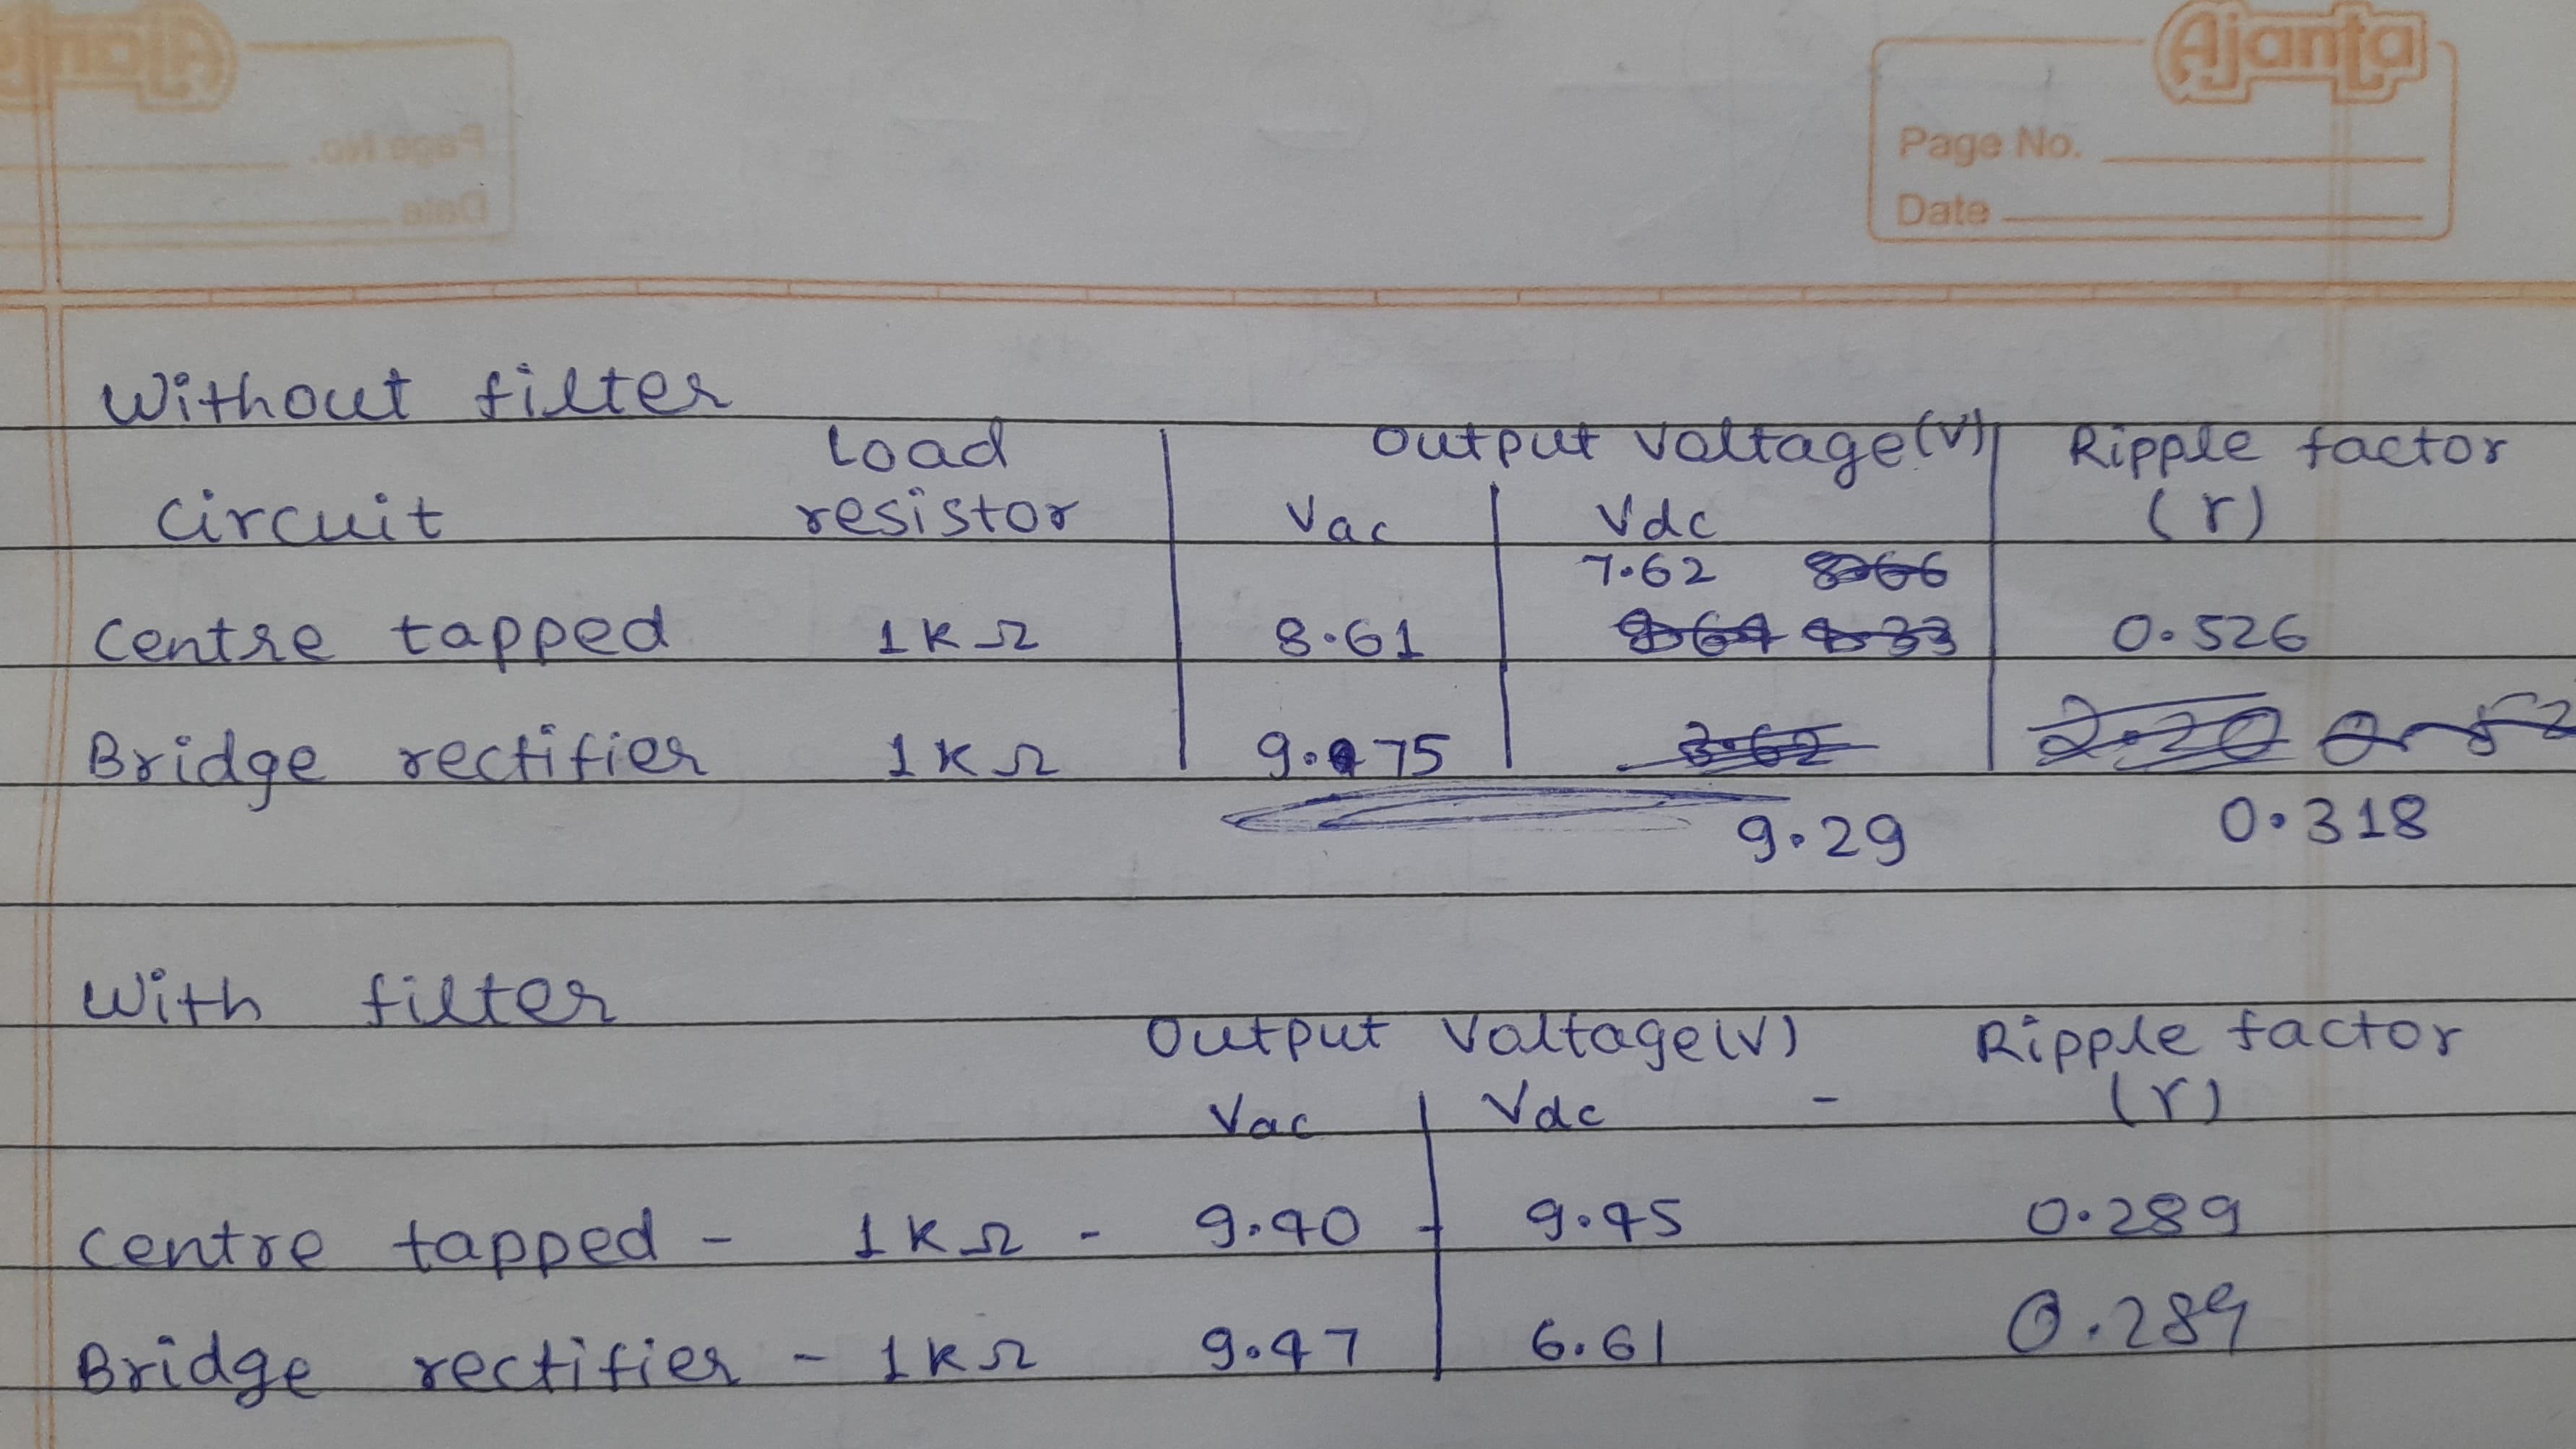 Ajanta
Page No.
Date
Without filter
Circuit Load resistor Output Voltage(V) Ripple factor
Vac Vdc (r)
7.62
Centre tapped 1kΩ 8.61 0.526
Bridge rectifier 1kΩ
9.29 0.318
With filter
Output Voltage(V) Ripple factor
Vac Vdc - (r)
Centre tapped - 1kΩ - 9.40 - 9.45 0.289
Bridge rectifier - 1kΩ 9.47 6.61 0.289